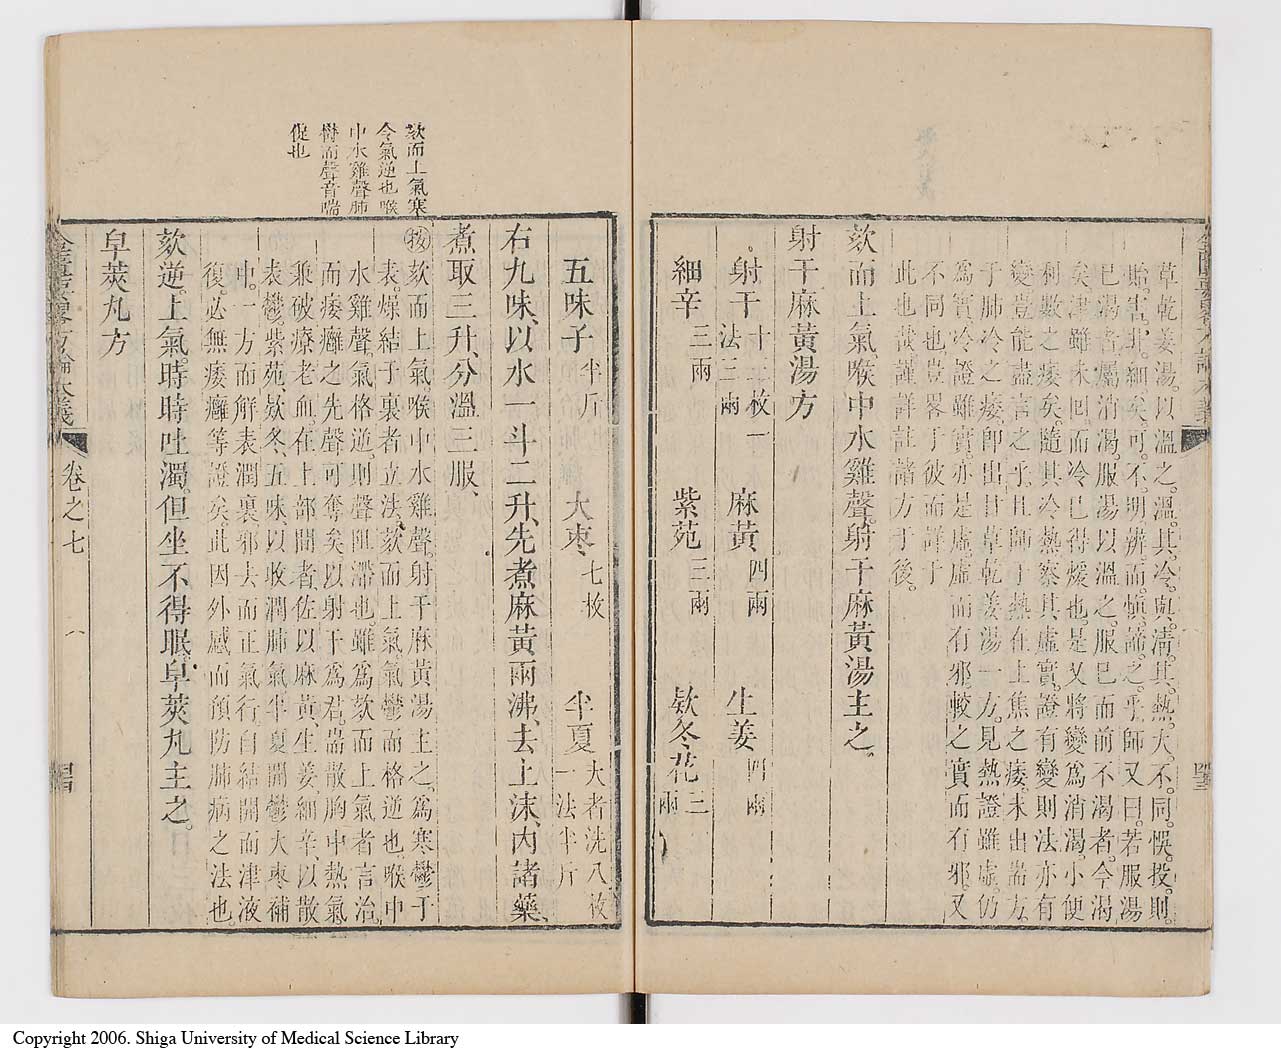 草乾姜湯。以溫之。溫。其。冷。與。淸。其。熱。大。不。同。悞。投。則。
貽。害。非。細矣。可。不。明辨。而。愼。諦。之。乎。師又曰。若服湯
已渴者。屬消渴。服湯以溫之。服已而前不渴者。今渴
矣津雖未回。而冷已得煖也。是又將變爲消渴。小便
利數之痿矣。隨其冷熱。察其虛實。證有變則法亦有
變。豈能盡言之乎。且師于熱在上焦之痿。未出耑方。
于肺冷之痿。卽出甘草乾姜湯一方。見熱證雖虛。仍
爲實。冷證雖實。亦是虛。虛而有邪。較之實而有邪。又
不同也。豈畧于彼而詳于
此也哉。謹詳註諸方于後。
欬而上氣。喉中水雞聲。射干麻黃湯主之。
射干麻黃湯方
射干十二枚一法三兩 麻黃四兩 生姜四兩
細辛三兩 紫苑三兩 欵冬花三兩
金匱要畧方論本義
五味子半斤 大棗七枚 半夏大者洗八枚一法半斤
右九味、以水一斗二升、先煮麻黃兩沸、去上沫、內諸藥、
煮取三升、分溫三服、
按欬而上氣。喉中水雞聲。射干麻黃湯主之。爲寒鬱于
表。燥結于裏者立法。欬而上氣。氣鬱而格逆也。喉中
水雞聲。氣格逆。則聲阻滯也。雖爲欬而上氣者言治。
而痿癰之先聲。可奪矣。以射干爲君。耑散胸中熱氣。
兼破療老血。在上部間者。佐以麻黃、生姜、細辛、以散
表鬱。紫苑、欵冬、五味、以收潤肺氣。半夏開鬱。大棗補
中。一方而解表潤裏。邪去而正氣行。自結開而津液
復。必無痿癰等證矣。此因外感而預防肺病之法也。
欬逆。上氣。時時吐濁。但坐不得眠。皁莢丸主之。
皁莢丸方
欬而上氣寒
令氣逆也喉
中水雞聲肺
鬱而聲音喘
促也
金匱要畧方論本義 卷之七 六
Copyright 2006. Shiga University of Medical Science Library